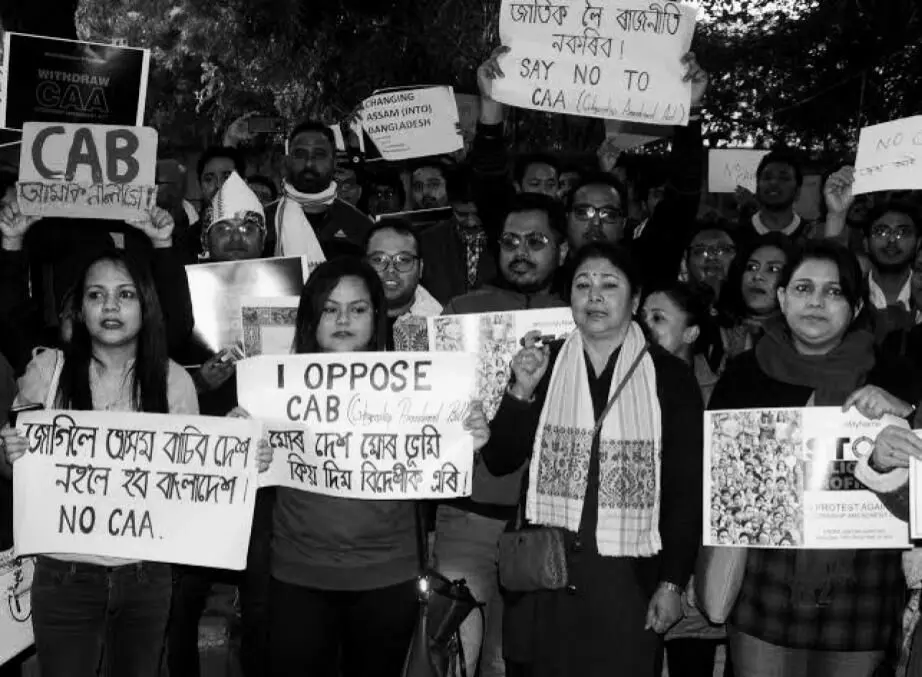 জাতিক লৈ ৰাজনীতি
নকৰিব !
SAY NO TO
CAA (Citizenship Amendment Act)
WITHDRAW
CAA
CHANGING
ASSAM (INTO)
BANGLADESH
CAB
আমাক নালাগে !
NO
NO C
I OPPOSE
CAB (Citizenship Amendment Bill)
মোৰ দেশ মোৰ ভূমি
কিয় দিম বিদেশীক এৰি !
জাগিলে অসম বাচিব দেশ
নহ'লে হ'ব বাংলাদেশ !
NO CAA.
PROTEST AGAIN